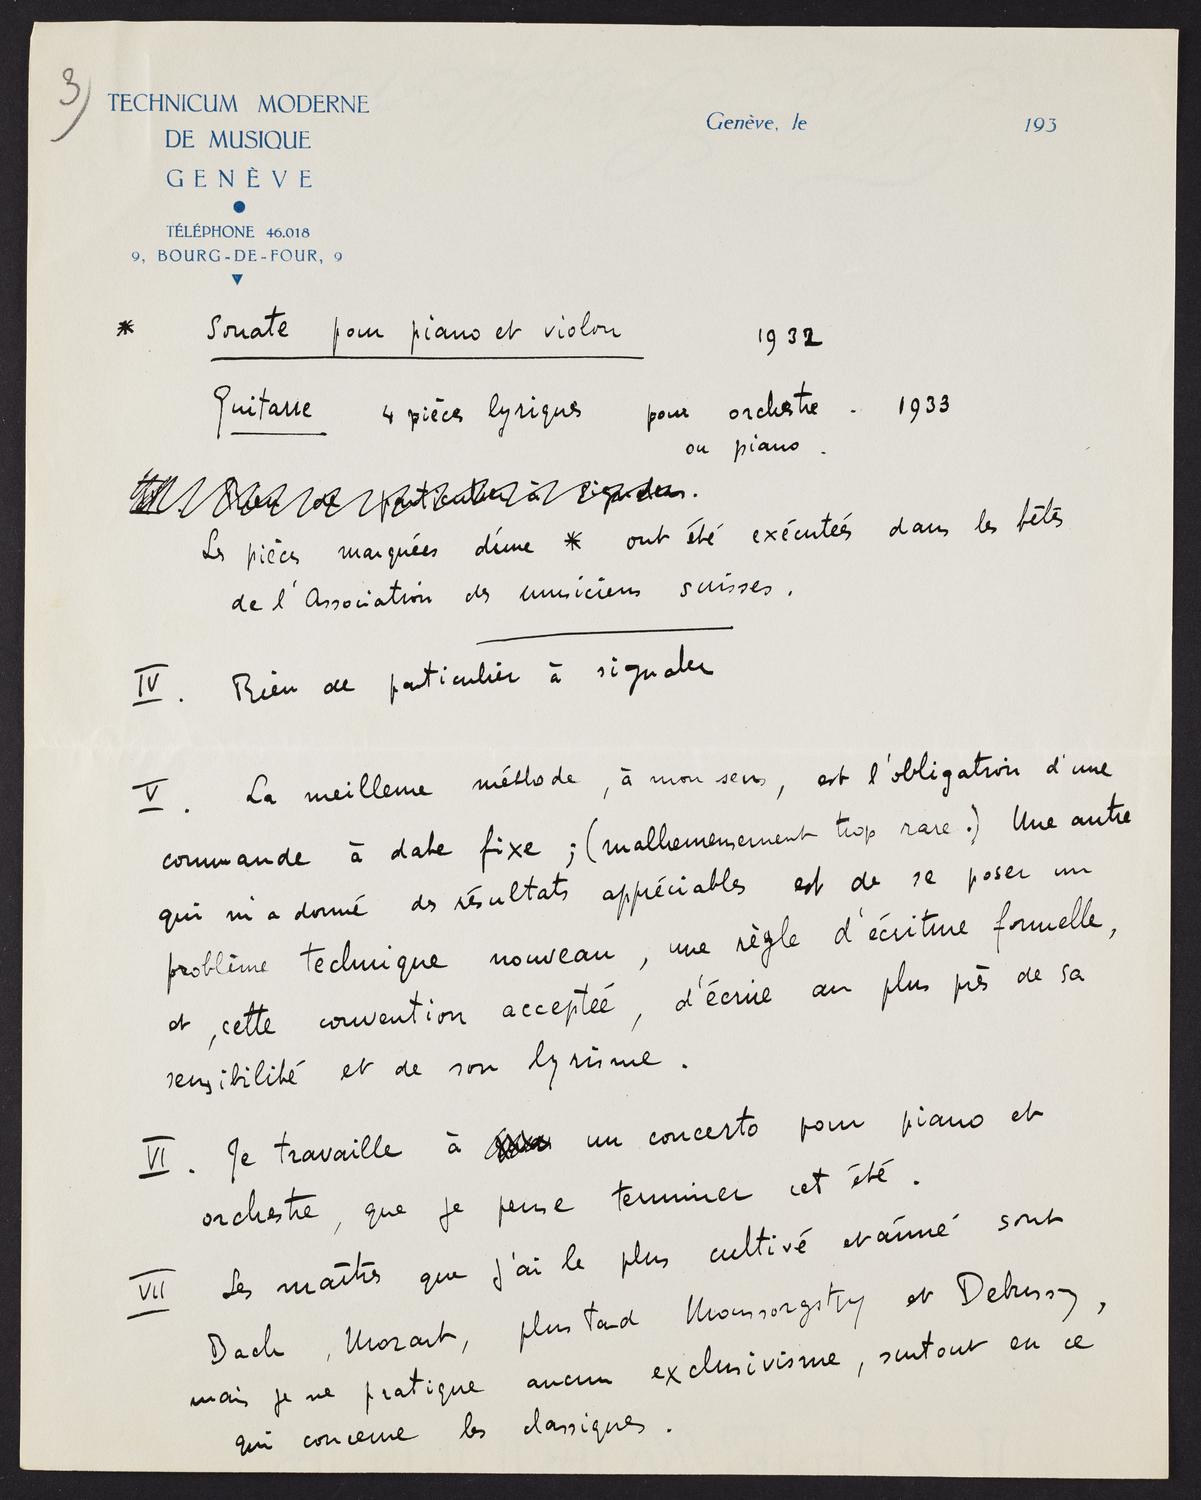 3)
TECHNICUM MODERNE
DE MUSIQUE
GENÈVE
TÉLÉPHONE 46.018
9, BOURG-DE-FOUR, 9
Genève, le 193
* Sonate pour piano et violon 1932
Guitarre 4 pièces lyriques pour orchestre . 1933
ou piano .
Rien de particulier à signaler.
Les pièces marquées d'une * ont été exécuteés dans les fêtes
de l'Association des musiciens suisses.
IV. Rien de particulier à signaler
V. La meilleure méthode, à mon sens, est l'obligation d'une
commande à date fixe ; (malheureusement trop rare !) Une autre
qui m'a donné des résultats appréciables est de se poser un
problème technique nouveau, une règle d'écriture formelle,
et, cette convention acceptéé, d'écrire au plus près de sa
sensibilité et de son lyrisme.
VI. Je travaille à un concerto pour piano et
orchestre, que je pense terminer cet été.
VII Les maîtres que j'ai le plus cultivé et aimé sont
Bach, Mozart, plus tard Moussorgsky et Debussy,
mais je ne pratique aucun exclusivisme, surtout en ce
qui concerne les classiques.